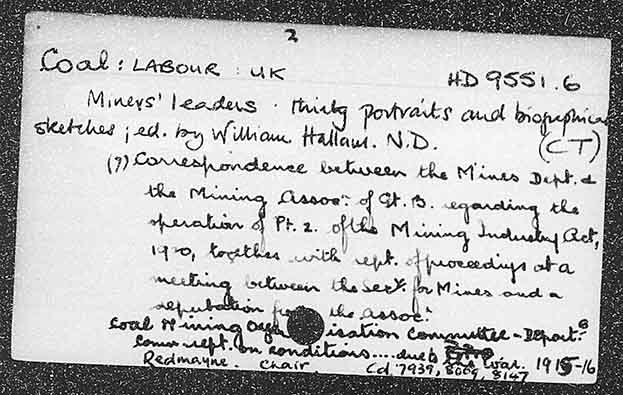 2
Coal : LABOUR : UK HD 9551.6
Miners' leaders. thirty portraits and biographical
sketches ; ed. by William Hallam. N.D. (CT)
(7) Correspondence between the Mines Dept. &
the Mining Assocn. of Gt. B. regarding the
operation of Pt. 2. of the Mining Industry Act,
1920, together with rept. of proceedings at a
meeting between the Secy. for Mines and a
deputation from the Assoc.
Coal Mining Organisation Committee - Depart.
Comm. rept. on conditions .... due to War. 1915-16
Redmayne. Chair Cd 7939, 8009, 8147